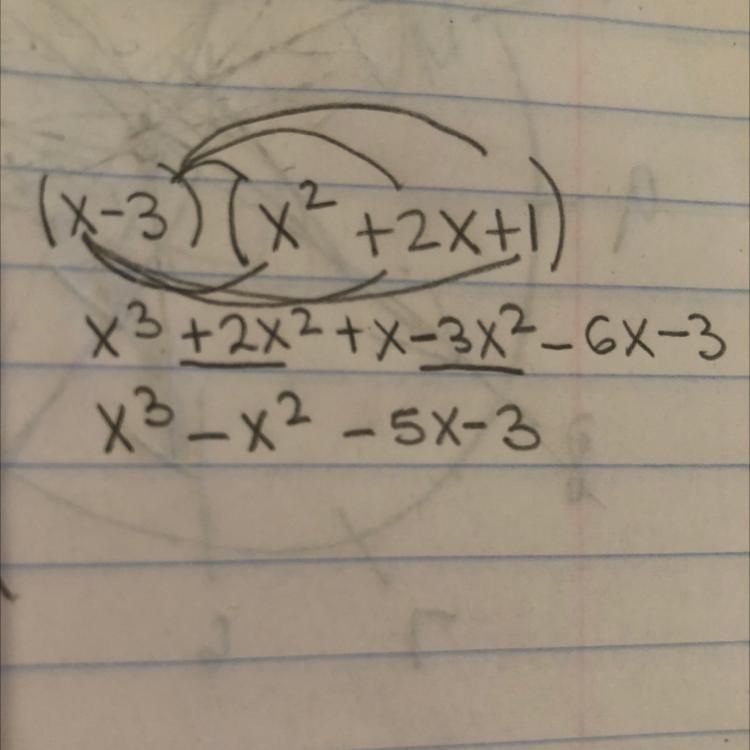 (x-3)(x² +2x+1)
x³ +2x² +x-3x² - 6x-3
x³ - x² - 5x-3